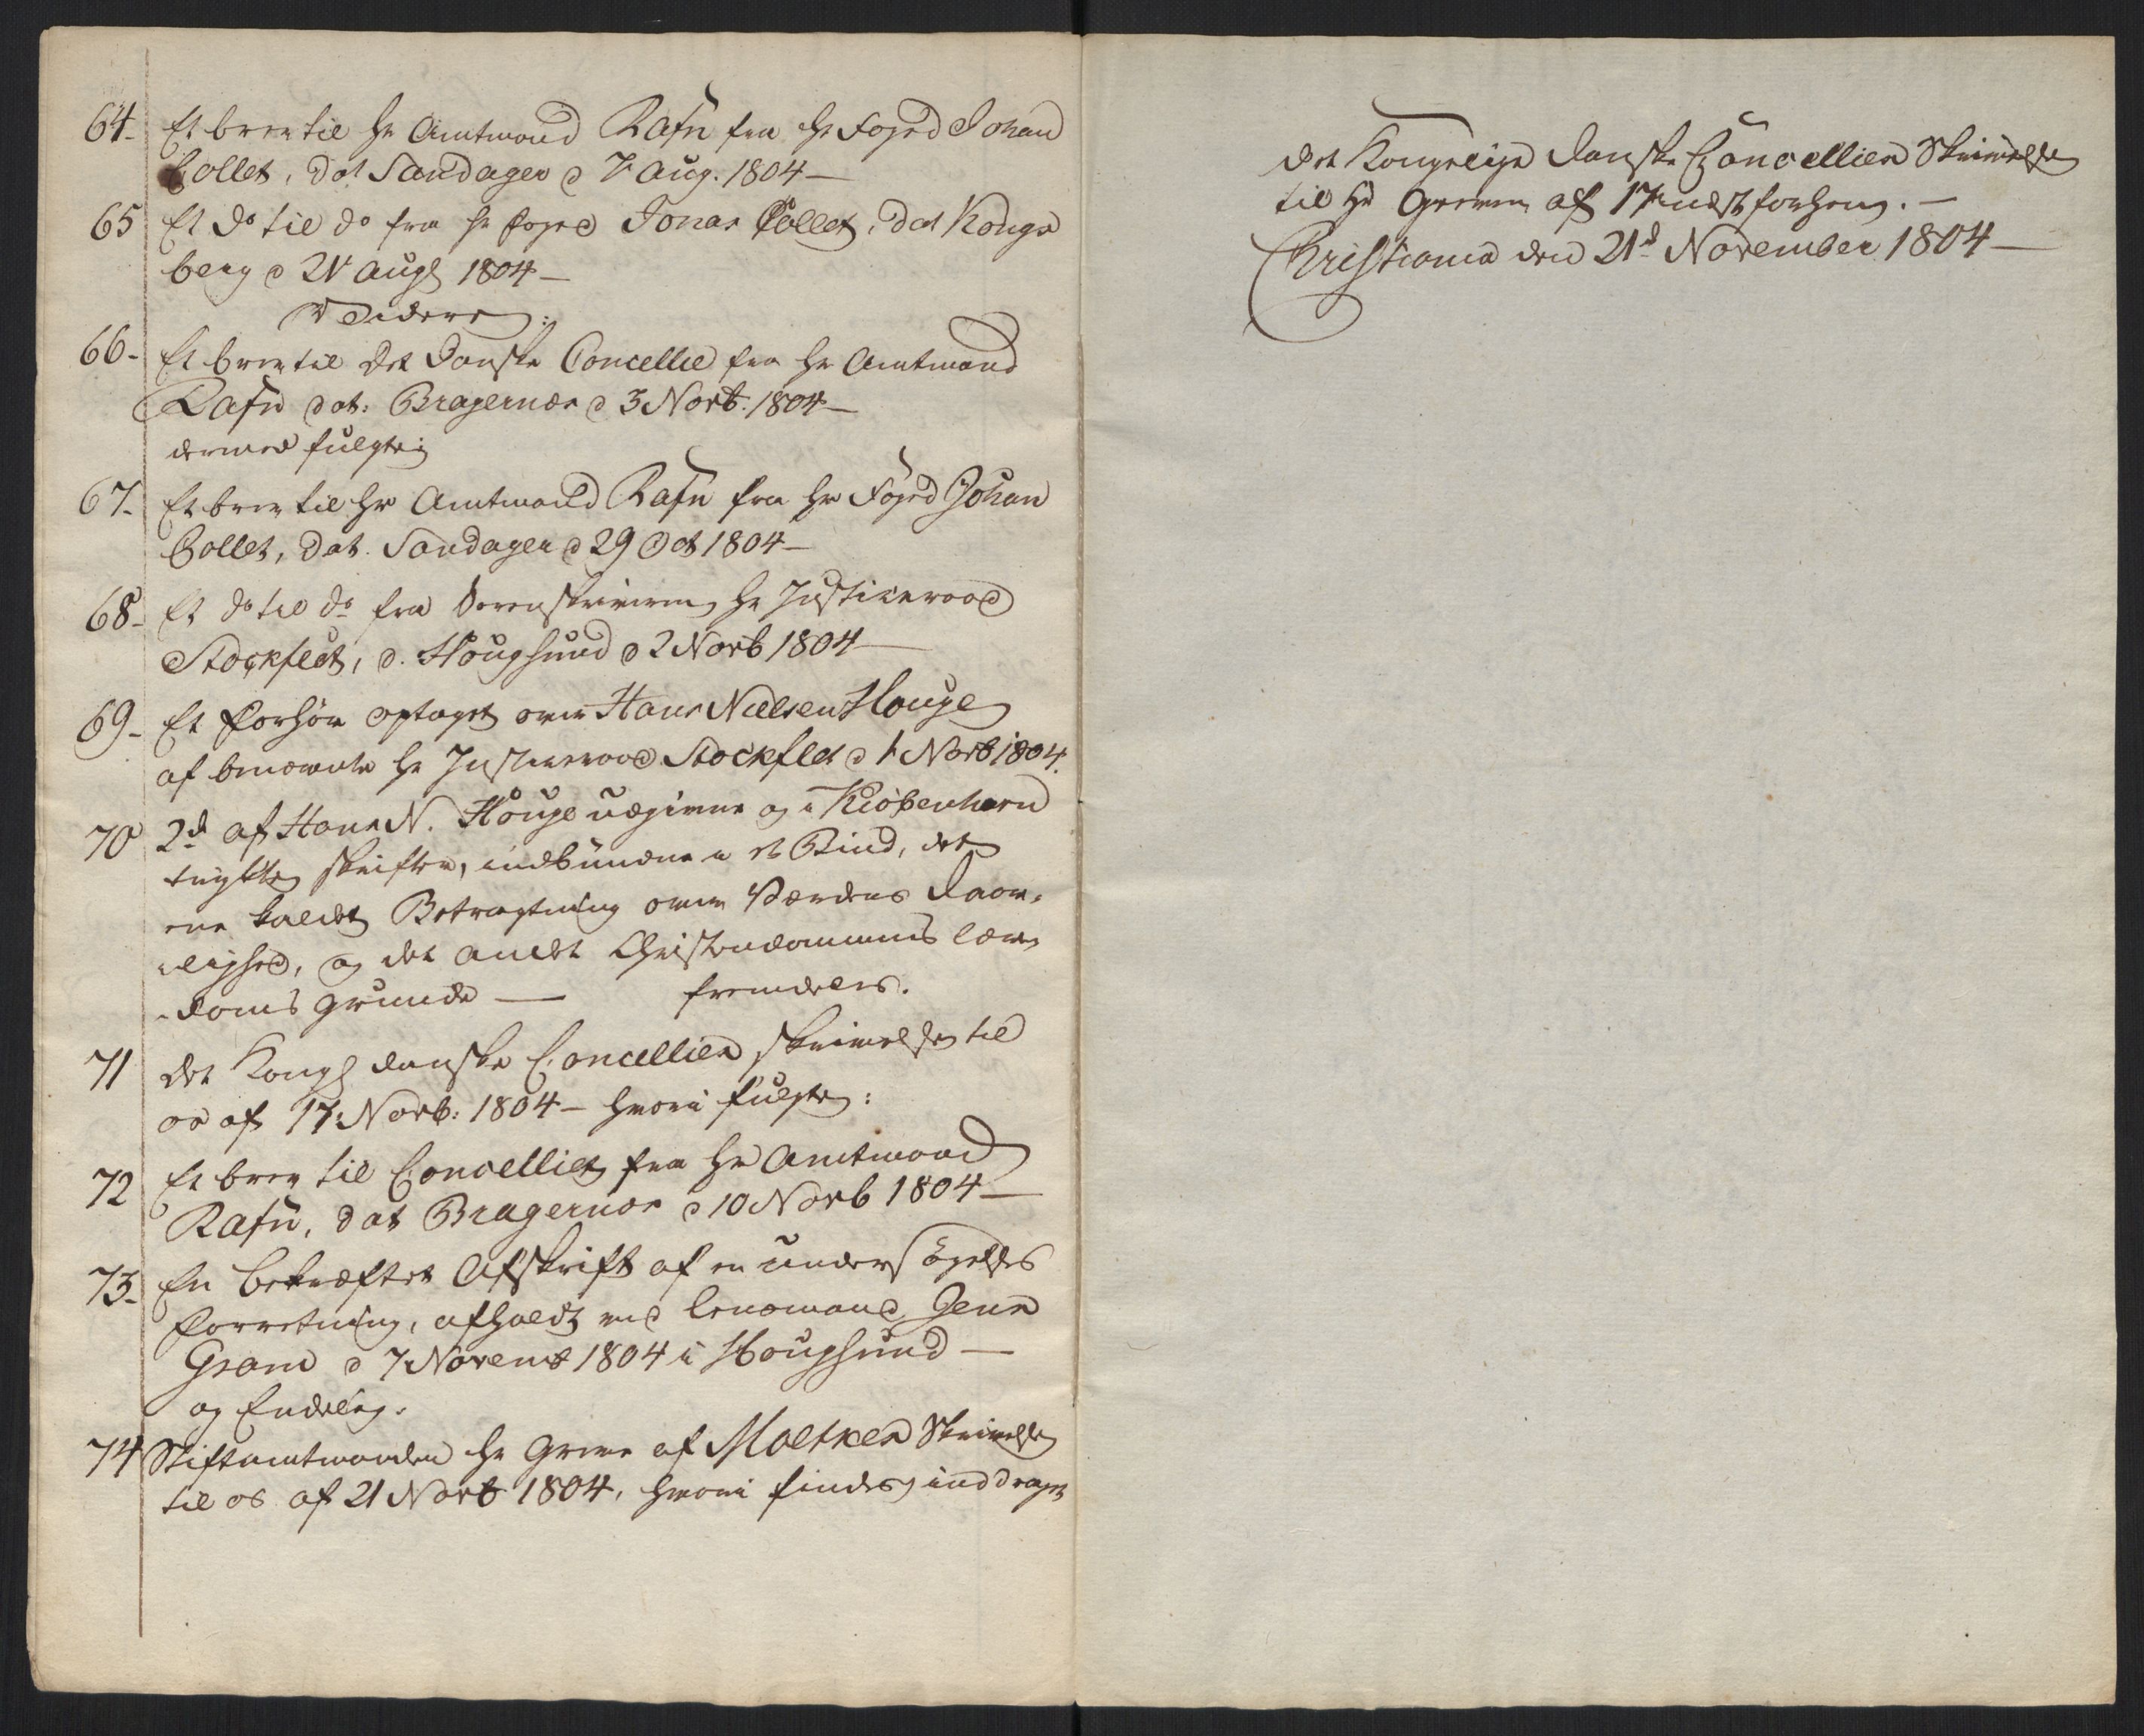 64. Et brev til Hr Amtmand Rafn fra Hr Foged Johan
Collet, dat Sandager d 7 Aug. 1804 —
65 Et do til do fra Hr Foged Jonas Collet, dat Kongs
berg d 21 Augl 1804 —
Videre:
66- Et brev til det Danske Cancellie fra Hr Amtmand
Rafn dat: Bragernæs d 3 Novb. 1804 —
dermed fulgte:
67- Et brev til Hr Amtmand Rafn fra Hr Foged Johan
Collet, dat. Sandager d 29 Oct 1804 —
68- Et do til do fra Sorenskriveren Hr Justizraad
Stockflet, d. Hougsund d 2 Novb 1804 —
69- Et Forhør optaget over Hans Nielsen Houge
af benævnte Hr Justizraad Stockflet d 1 Novb 1804.
70 2de af Hans N. Houge udgivne og i Kiøbenhavn
trykte skrifter, indbundne i et Bind, det
ene kaldet Betragtning over Værdens Daar-
lighed, og det andet Christendommens Lær-
doms grunde — fremdeles.
71 Det Kongl danske Cancellies skrivelse til
os af 17. Novb: 1804 — hvori fulgte:
72 Et brev til Cancelliet fra Hr Amtmand
Rafn, dat Bragernæs d 10 Novb 1804 —
73- En bekræftet Afskrift af en undersøgelses
Forretning, afholdt ved Lensmand Jens
Gram d 7 Novemb 1804 i Hougsund —
og Endelig.
74 Stiftamtmanden Hr Greve af Moltkes Skrivelse
til os af 21 Novb 1804, hvori findes inddraget
det Kongelige danske Cancellies Skrivelse
til Hr Greven af 17 næstforhen. —
Christiania den 21d November 1804 —